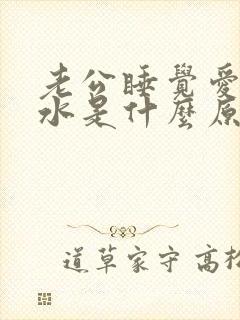 老公睡覺愛
水是什麼原
道草家守 高松